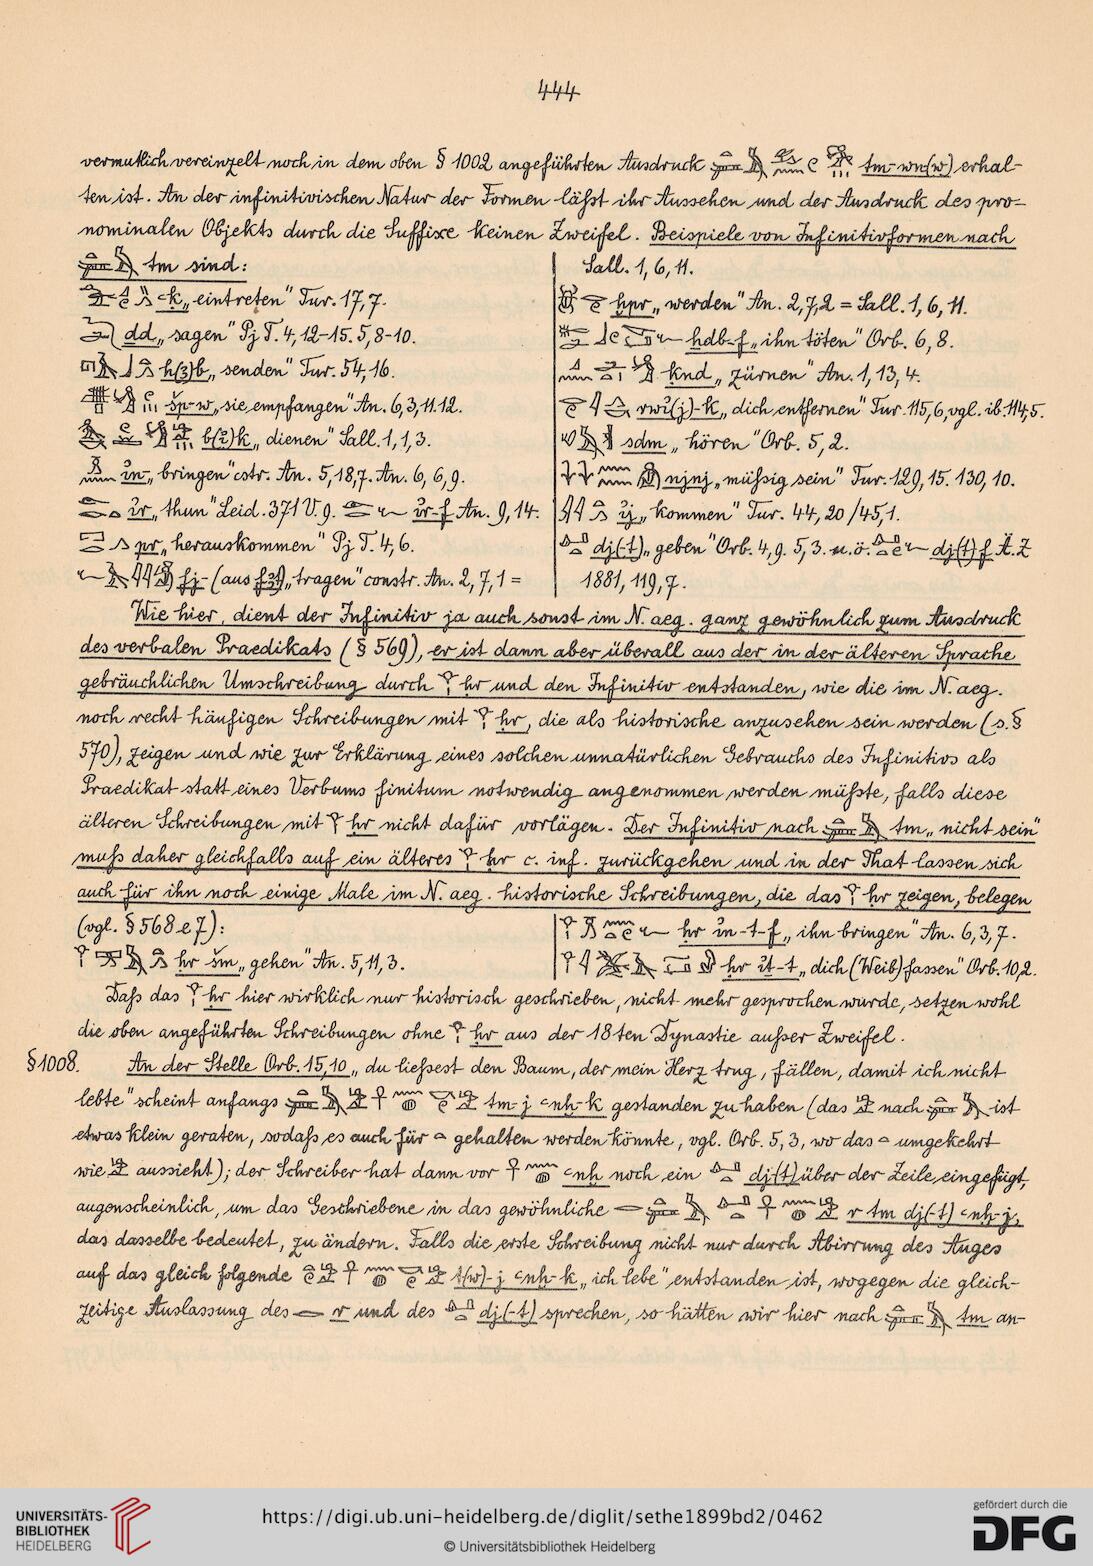 444
vermutlich vereinzelt noch in dem oben § 1002 angeführten Ausdruck tm-wn(w) erhal-
ten ist. An der infinitivischen Natur der Formen läßt ihr Aussehen und der Ausdruck des pro-
nominalen Objekts durch die Suffixe keinen Zweifel. Beispiele von Infinitivformen nach
tm sind:
ꜥḳ „eintreten" Tur. 17,7.
dd „sagen" Pj T. 4,12-15. 5,8-10.
h(ȝ)b „senden" Tur. 54,16.
šp-w „sie empfangen" An. 6,3,11.12.
b(ȝ)k „dienen" Sall. 1,1,3.
in- „bringen" cstr. An. 5,18,7. An. 6,6,9.
ir „thun" Leid. 371 V. 9. ir-f An. 9,14.
pr „herauskommen" Pj T. 4,6.
fj- (aus „tragen" constr. An. 2,7,1 =
Sall. 1,6,11.
ḫpr „werden" An. 2,7,2 = Sall. 1,6,11.
ḫdb-f „ihn töten" Orb. 6,8.
ḳnd „zürnen" An. 1,13,4.
rwi(j)-k „dich entfernen" Tur. 115,6, vgl. ib. 114,5.
sdm „hören" Orb. 5,2.
njnj „müßig sein" Tur. 129,15. 130,10.
ij „kommen" Tur. 44,20/45,1.
dj(-t) „geben" Orb. 4,9. 5,3. u.ö. dj(t)f Ä.Z
1881, 119,7.
Wie hier, dient der Infinitiv ja auch sonst im N. aeg. ganz gewöhnlich zum Ausdruck
des verbalen Praedikats (§ 569), er ist dann aber überall aus der in der älteren Sprache
gebräuchlichen Umschreibung durch ḥr und den Infinitiv entstanden, wie die im N. aeg.
noch recht häufigen Schreibungen mit ḥr, die als historische anzusehen sein werden (s. §
570), zeigen und wie zur Erklärung eines solchen unnatürlichen Gebrauchs des Infinitivs als
Praedikat statt eines Verbums finitum notwendig angenommen werden müßte, falls diese
älteren Schreibungen mit ḥr nicht dafür vorlägen. Der Infinitiv nach tm „nicht sein"
muß daher gleichfalls auf ein älteres ḥr c. inf. zurückgehen und in der That lassen sich
auch für ihn noch einige Male im N. aeg. historische Schreibungen, die das ḥr zeigen, belegen
(vgl. § 568 e 7):
ḥr šm „gehen" An. 5,11,3.
ḥr in-t-f „ihn bringen" An. 6,3,7.
ḥr it-t „dich (Weib) fassen" Orb. 10,2.
Daß das ḥr hier wirklich nur historisch geschrieben, nicht mehr gesprochen wurde, setzen wohl
die oben angeführten Schreibungen ohne ḥr aus der 18ten Dynastie außer Zweifel.
§ 1008. An der Stelle Orb. 15,10 „du ließest den Baum, der mein Herz trug, fällen, damit ich nicht
lebte" scheint anfangs tm-j ꜥnḫ-k gestanden zu haben (das nach ist
etwas klein geraten, sodaß es auch für gehalten werden könnte, vgl. Orb. 5,3, wo das umgekehrt
wie aussieht); der Schreiber hat dann vor ꜥnḫ noch ein dj(t) über der Zeile eingefügt,
augenscheinlich, um das Geschriebene in das gewöhnliche r tm dj(-t) ꜥnḫ-j,
das dasselbe bedeutet, zu ändern. Falls die erste Schreibung nicht nur durch Abirrung des Auges
auf das gleich folgende t(w)-j ꜥnḫ-k „ich lebe" entstanden ist, wogegen die gleich-
zeitige Auslassung des r und des dj(-t) sprechen, so hätten wir hier nach tm an-
UNIVERSITÄTS-
BIBLIOTHEK
HEIDELBERG
https://digi.ub.uni-heidelberg.de/diglit/sethe1899bd2/0462
© Universitätsbibliothek Heidelberg
gefördert durch die
DFG